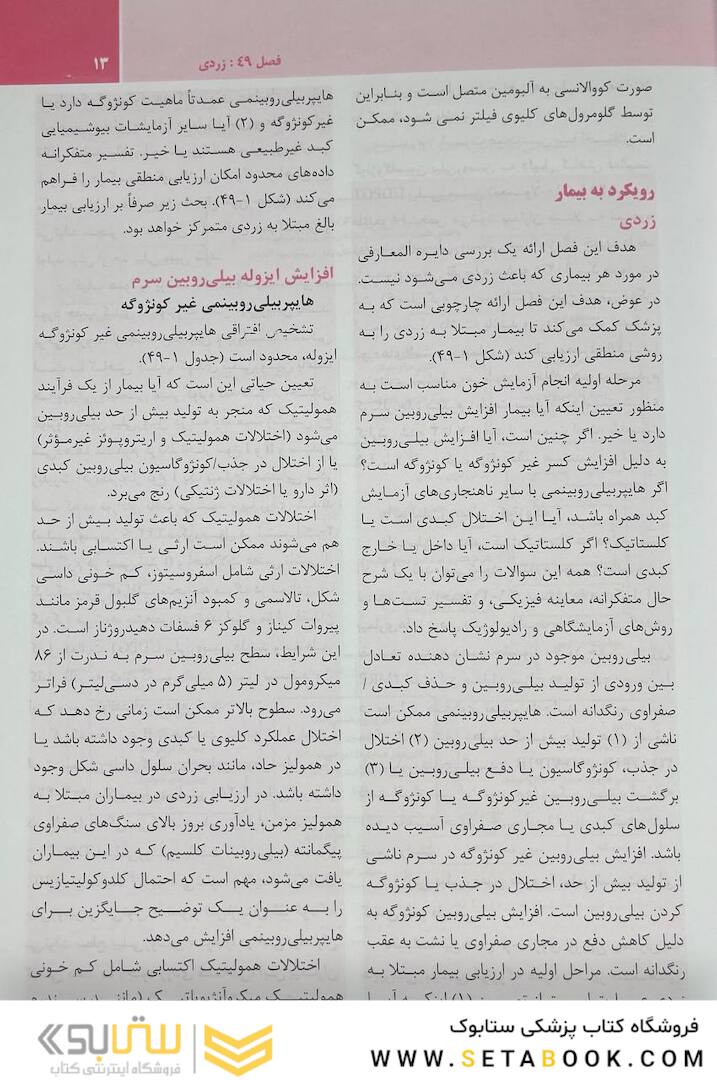 فصل ٤٩ : زردی
١٣
صورت کووالانسی به آلبومین متصل است و بنابراین
توسط گلومرول‌های کلیوی فیلتر نمی شود، ممکن
است.
رویکرد به بیمار
زردی
هدف این فصل ارائه یک بررسی دایره المعارفی
در مورد هر بیماری که باعث زردی می‌شود نیست.
در عوض، هدف این فصل ارائه چارچوبی است که به
پزشک کمک می‌کند تا بیمار مبتلا به زردی را به
روشی منطقی ارزیابی کند (شکل ۱-۴۹).
مرحله اولیه انجام آزمایش خون مناسب است به
منظور تعیین اینکه آیا بیمار افزایش بیلی‌روبین سرم
دارد یا خیر. اگر چنین است، آیا افزایش بیلی‌روبین
به دلیل افزایش کسر غیر کونژوگه یا کونژوگه است؟
اگر هایپربیلی‌روبینمی با سایر ناهنجاری‌های آزمایش
کبد همراه باشد، آیا این اختلال کبدی است یا
کلستاتیک؟ اگر کلستاتیک است، آیا داخل یا خارج
کبدی است؟ همه این سوالات را می‌توان با یک شرح
حال متفکرانه، معاینه فیزیکی، و تفسیر تست‌ها و
روش‌های آزمایشگاهی و رادیولوژیک پاسخ داد.
بیلی‌روبین موجود در سرم نشان دهنده تعادل
بین ورودی از تولید بیلی‌روبین و حذف کبدی /
صفراوی رنگدانه است. هایپربیلی‌روبینمی ممکن است
ناشی از (۱) تولید بیش از حد بیلی‌روبین (۲) اختلال
در جذب، کونژوگاسیون یا دفع بیلی‌روبین یا (۳)
برگشت بیلی‌روبین غیرکونژوگه یا کونژوگه از
سلول‌های کبدی یا مجاری صفراوی آسیب دیده
باشد. افزایش بیلی‌روبین غیر کونژوگه در سرم ناشی
از تولید بیش از حد، اختلال در جذب یا کونژوگه
کردن بیلی‌روبین است. افزایش بیلی‌روبین کونژوگه به
دلیل کاهش دفع در مجاری صفراوی یا نشت به عقب
رنگدانه است. مراحل اولیه در ارزیابی بیمار مبتلا به
هایپربیلی‌روبینمی عمدتاً ماهیت کونژوگه دارد یا
غیرکونژوگه و (۲) آیا سایر آزمایشات بیوشیمیایی
کبد غیرطبیعی هستند یا خیر. تفسیر متفکرانه
داده‌های محدود امکان ارزیابی منطقی بیمار را فراهم
می‌کند (شکل ۱-۴۹). بحث زیر صرفاً بر ارزیابی بیمار
بالغ مبتلا به زردی متمرکز خواهد بود.
افزایش ایزوله بیلی‌روبین سرم
هایپربیلی‌روبینمی غیر کونژوگه
تشخیص افتراقی هایپربیلی‌روبینمی غیر کونژوگه
ایزوله، محدود است (جدول ۱-۴۹).
تعیین حیاتی این است که آیا بیمار از یک فرآیند
همولیتیک که منجر به تولید بیش از حد بیلی‌روبین
می‌شود (اختلالات همولیتیک و اریتروپوئز غیرمؤثر)
یا از اختلال در جذب/کونژوگاسیون بیلی‌روبین کبدی
(اثر دارو یا اختلالات ژنتیکی) رنج می‌برد.
اختلالات همولیتیک که باعث تولید بیش از حد
هم می‌شوند ممکن است ارثی یا اکتسابی باشند.
اختلالات ارثی شامل اسفروسیتوز، کم خونی داسی
شکل، تالاسمی و کمبود آنزیم‌های گلبول قرمز مانند
پیروات کیناز و گلوکز ۶ فسفات دهیدروژناز است. در
این شرایط، سطح بیلی‌روبین سرم به ندرت از ۸۶
میکرومول در لیتر (۵ میلی‌گرم در دسی‌لیتر) فراتر
می‌رود. سطوح بالاتر ممکن است زمانی رخ دهد که
اختلال عملکرد کلیوی یا کبدی وجود داشته باشد یا
در همولیز حاد، مانند بحران سلول داسی شکل وجود
داشته باشد. در ارزیابی زردی در بیماران مبتلا به
همولیز مزمن، یادآوری بروز بالای سنگ‌های صفراوی
پیگمانته (بیلی‌روبینات کلسیم) که در این بیماران
یافت می‌شود، مهم است که احتمال کلدوکولیتیازیس
را به عنوان یک توضیح جایگزین برای
هایپربیلی‌روبینمی افزایش می‌دهد.
اختلالات همولیتیک اکتسابی شامل کم خونی
همولیتیک میکروآنژیوپاتیک
فروشگاه کتاب پزشکی ستابوک
WWW.SETABOOK.COM
ستابوک
فروشگاه اینترنتی کتاب